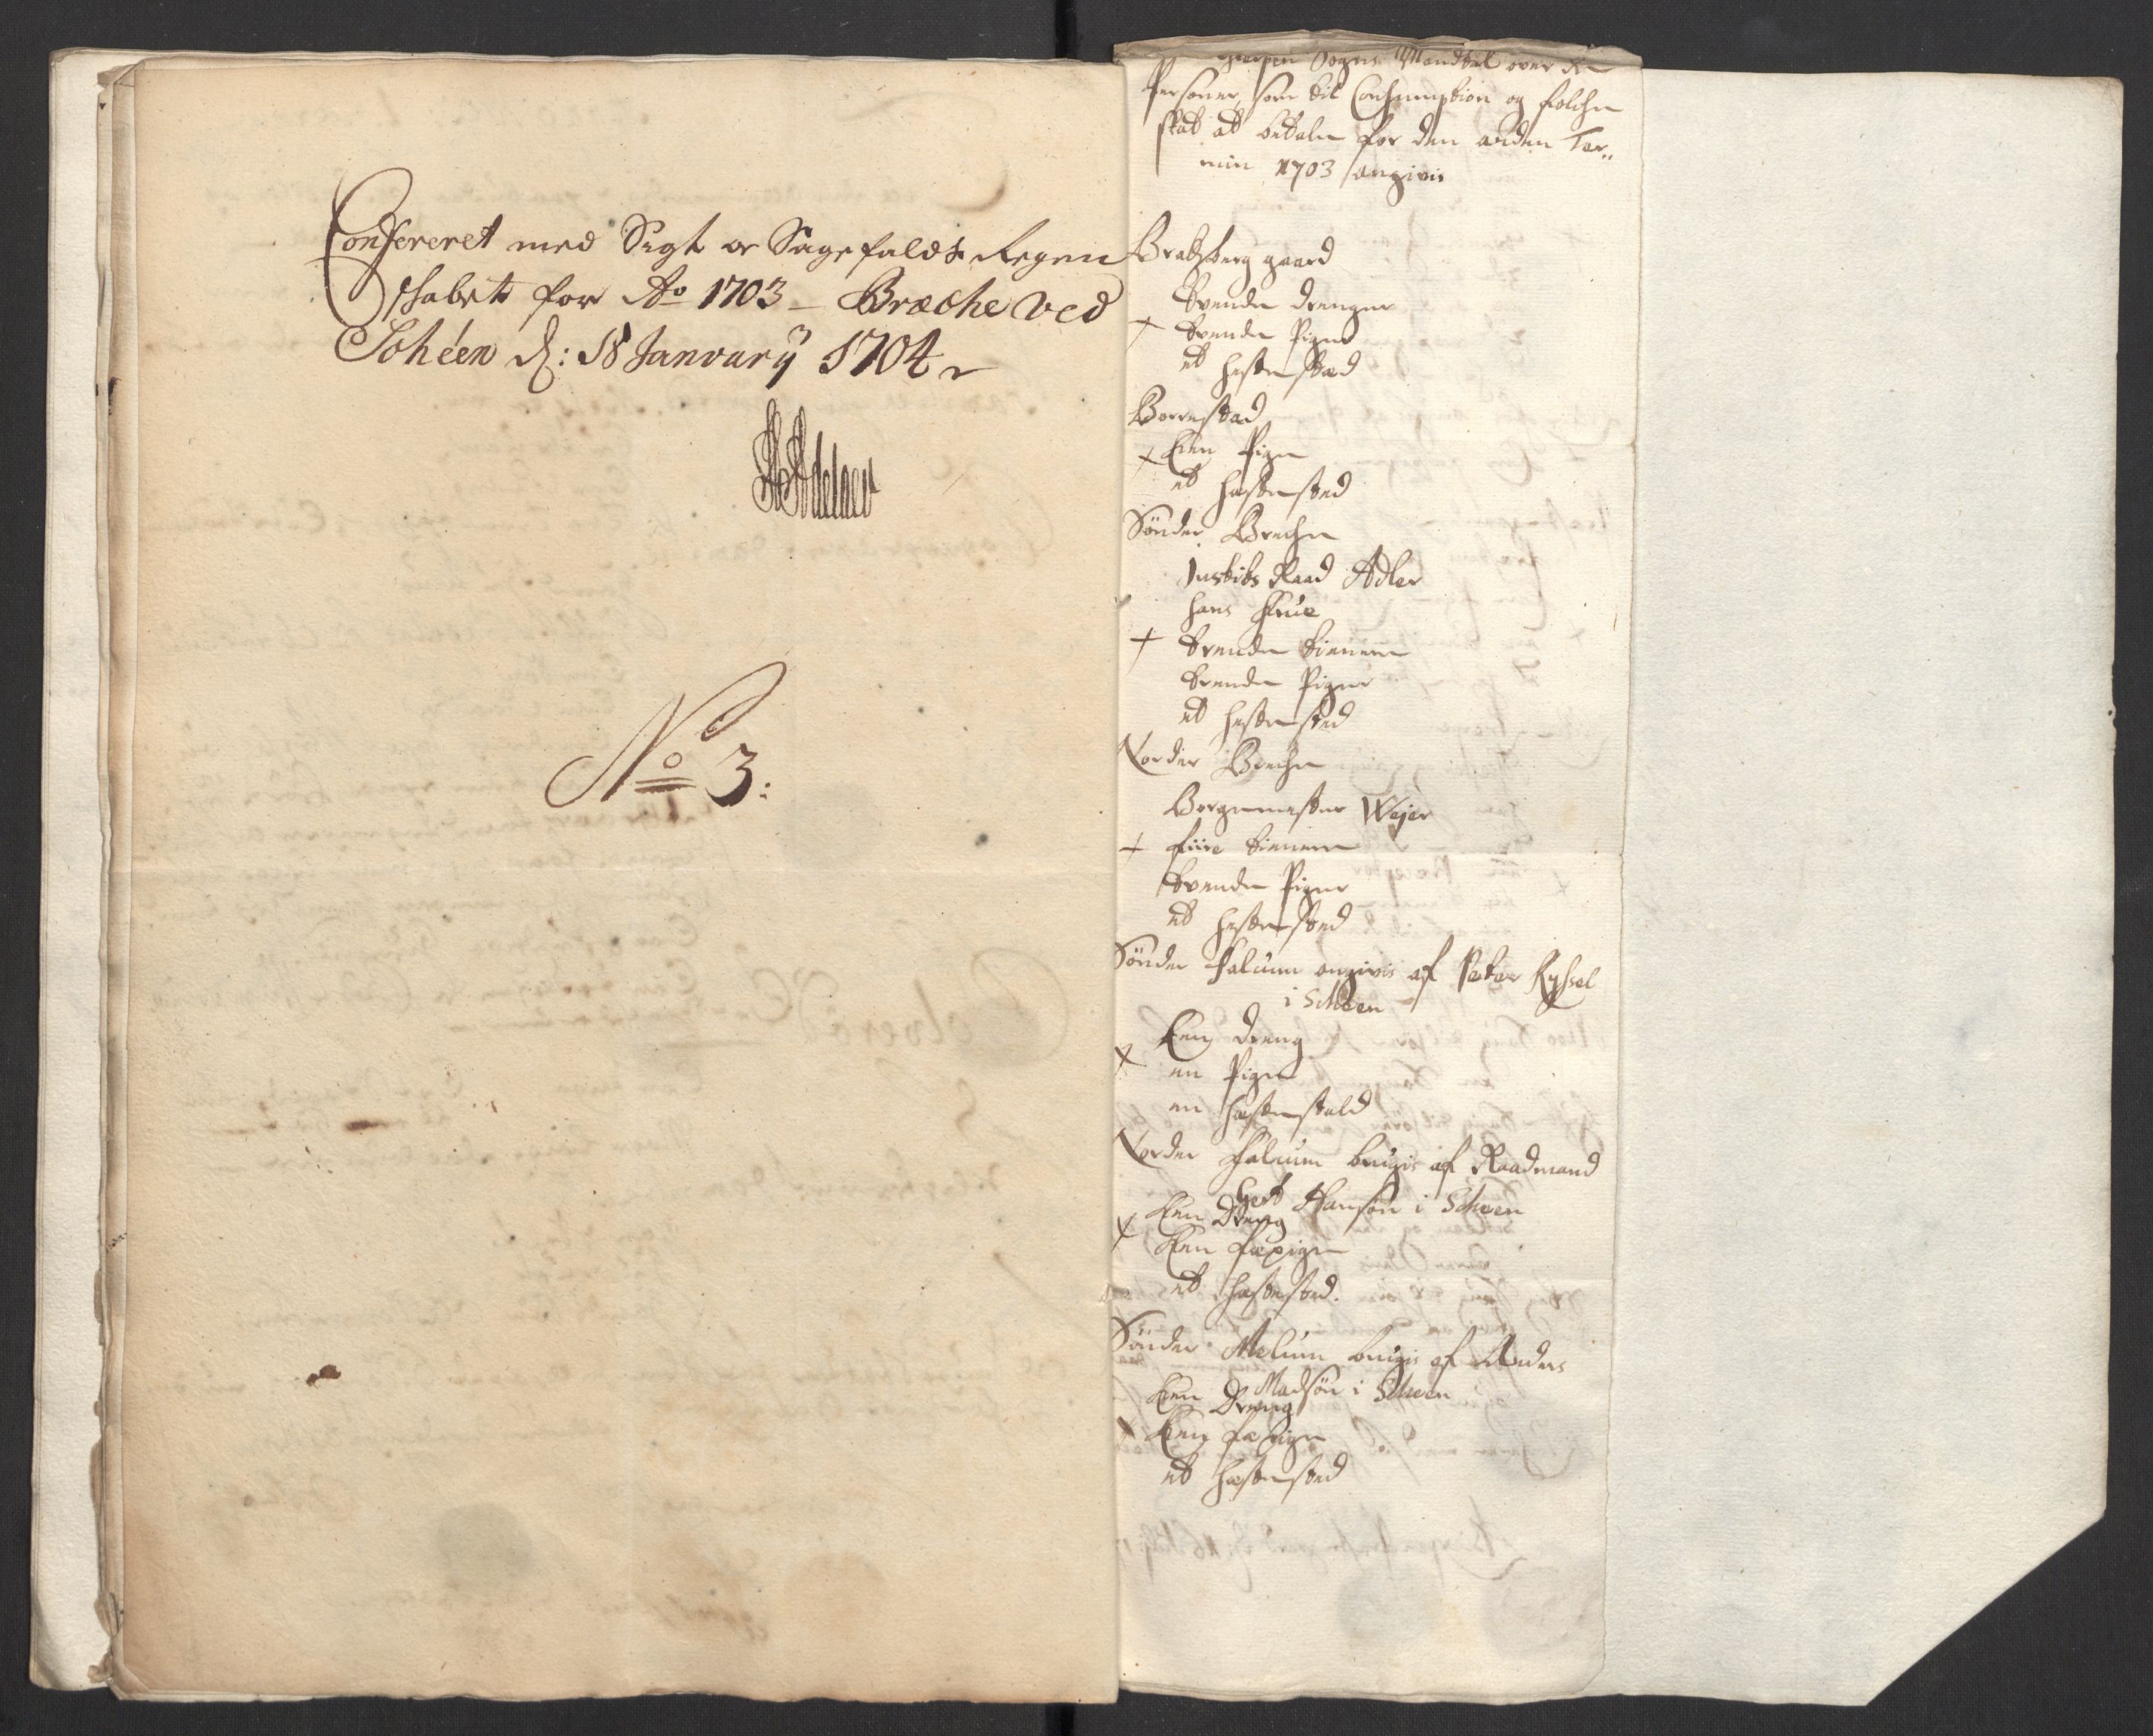 Confereret med Sigt oc Sagefalds Regen
schabet for Ao 1703 – Bræche ved
Scheen d: 18 January 1704
No 3:
Gierpen Sogns Mandtal over de
Personer, som til Consumption og folche
skat at betale for den anden Ter„
min 1703 angivis
Bratzberg gaard
Tvende drenger
+ Tvende Piger
et hestestæd
Borrestad
+ Een Pige
et hestested
Sönder Breche
Justits Raad Adler
hans Frue
+ trende tienere
trende Piger
et hestested
Norder Breche
Borgemester Wejer
+ fiire tienere
tvende Piger
et hestested
Sönder Falcum angivis af Peter Ryssel
i Scheen
Een dreng
+ en Pige
en hestestald
Norder Falcum brugis af Raadmand
Gert Hansøn i Scheen
Een Dreng
+ Een fæpige
et hestested.
Sönder Melum brugis af Anders
Madsøn i Scheen
Een Dreng
+ Een fæpige
et hestested